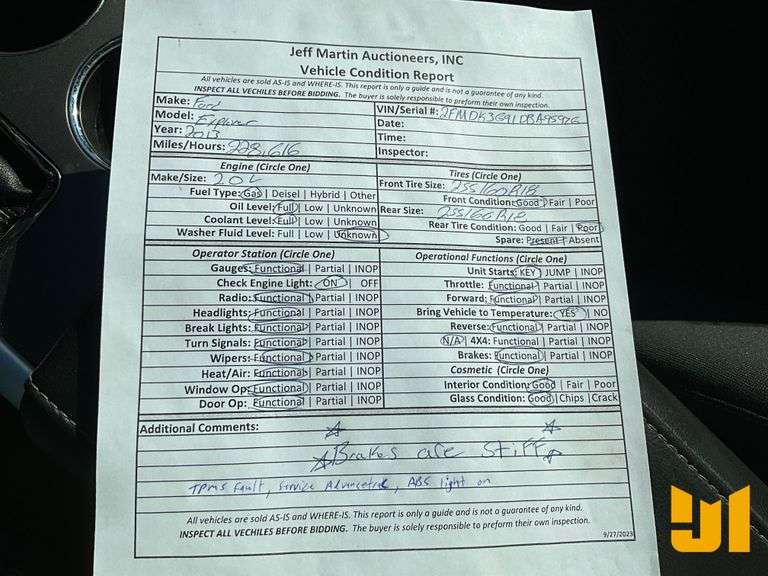 Jeff Martin Auctioneers, INC
Vehicle Condition Report
All vehicles are sold AS-IS and WHERE-IS. This report is only a guide and is not a guarantee of any kind.
INSPECT ALL VECHILES BEFORE BIDDING. The buyer is solely responsible to preform their own inspection.
Make: Ford
Model: Explorer
Year: 2013
Miles/Hours: 228,616
VIN/Serial #:
Date:
Time:
Inspector:
Engine (Circle One)
Make/Size: 2.0L
Fuel Type: Gas | Deisel | Hybrid | Other
Oil Level: Full | Low | Unknown
Coolant Level: Full | Low | Unknown
Washer Fluid Level: Full | Low | Unknown
Tires (Circle One)
Front Tire Size: 255/60R18
Front Condition: Good | Fair | Poor
Rear Size: 255/60R18
Rear Tire Condition: Good | Fair | Poor
Spare: Present | Absent
Operator Station (Circle One)
Gauges: Functional | Partial | INOP
Check Engine Light: ON | OFF
Radio: Functional | Partial | INOP
Headlights: Functional | Partial | INOP
Break Lights: Functional | Partial | INOP
Turn Signals: Functional | Partial | INOP
Wipers: Functional | Partial | INOP
Heat/Air: Functional | Partial | INOP
Window Op: Functional | Partial | INOP
Door Op: Functional | Partial | INOP
Operational Functions (Circle One)
Unit Starts: KEY | JUMP | INOP
Throttle: Functional | Partial | INOP
Forward: Functional | Partial | INOP
Bring Vehicle to Temperature: YES | NO
Reverse: Functional | Partial | INOP
N/A | 4X4: Functional | Partial | INOP
Brakes: Functional | Partial | INOP
Cosmetic (Circle One)
Interior Condition: Good | Fair | Poor
Glass Condition: Good | Chips | Crack
Additional Comments:
Brakes are stiff
TPMS fault, Service Advancetrac, ABS light on
All vehicles are sold AS-IS and WHERE-IS. This report is only a guide and is not a guarantee of any kind.
INSPECT ALL VECHILES BEFORE BIDDING. The buyer is solely responsible to preform their own inspection.
9/27/2023